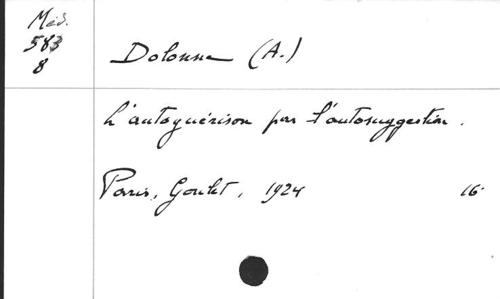 Méd.
583
8
Dolonne (A.)
L'autoguérison par l'autosuggestion.
Paris, Goulet, 1924 16°